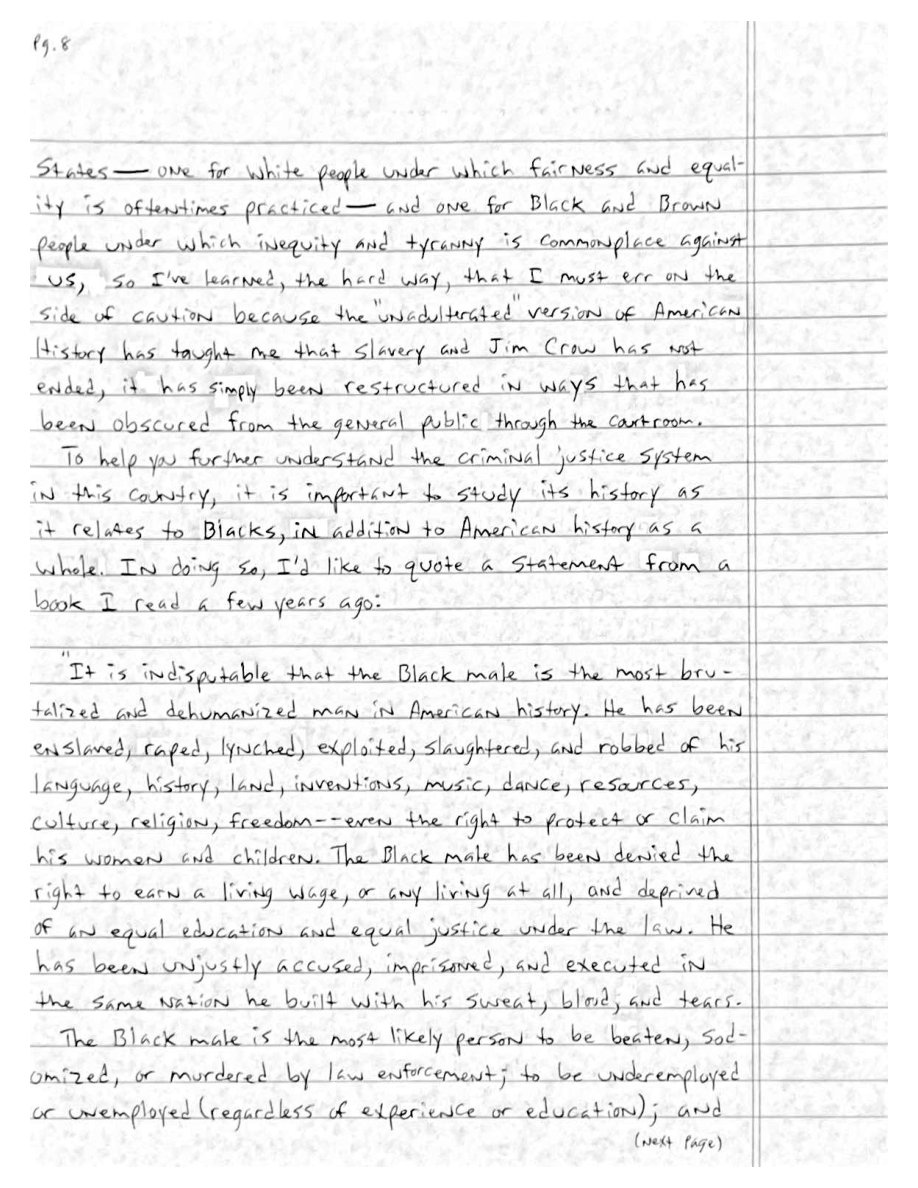 Pg. 8
States — one for white people under which fairness and equal-
ity is oftentimes practiced — and one for Black and Brown
people under which inequity and tyranny is commonplace against
us, so I've learned, the hard way, that I must err on the
side of caution because the "unadulterated" version of American
History has taught me that slavery and Jim Crow has not
ended, it has simply been restructured in ways that has
been obscured from the general public through the courtroom.
To help you further understand the criminal justice system
in this country, it is important to study its history as
it relates to Blacks, in addition to American history as a
whole. In doing so, I'd like to quote a statement from a
book I read a few years ago:
"It is indisputable that the Black male is the most bru-
talized and dehumanized man in American history. He has been
enslaved, raped, lynched, exploited, slaughtered, and robbed of his
language, history, land, inventions, music, dance, resources,
culture, religion, freedom -- even the right to protect or claim
his women and children. The Black male has been denied the
right to earn a living wage, or any living at all, and deprived
of an equal education and equal justice under the law. He
has been unjustly accused, imprisoned, and executed in
the same nation he built with his sweat, blood, and tears.
The Black male is the most likely person to be beaten, sod-
omized, or murdered by law enforcement; to be underemployed
or unemployed (regardless of experience or education); and
(Next Page)